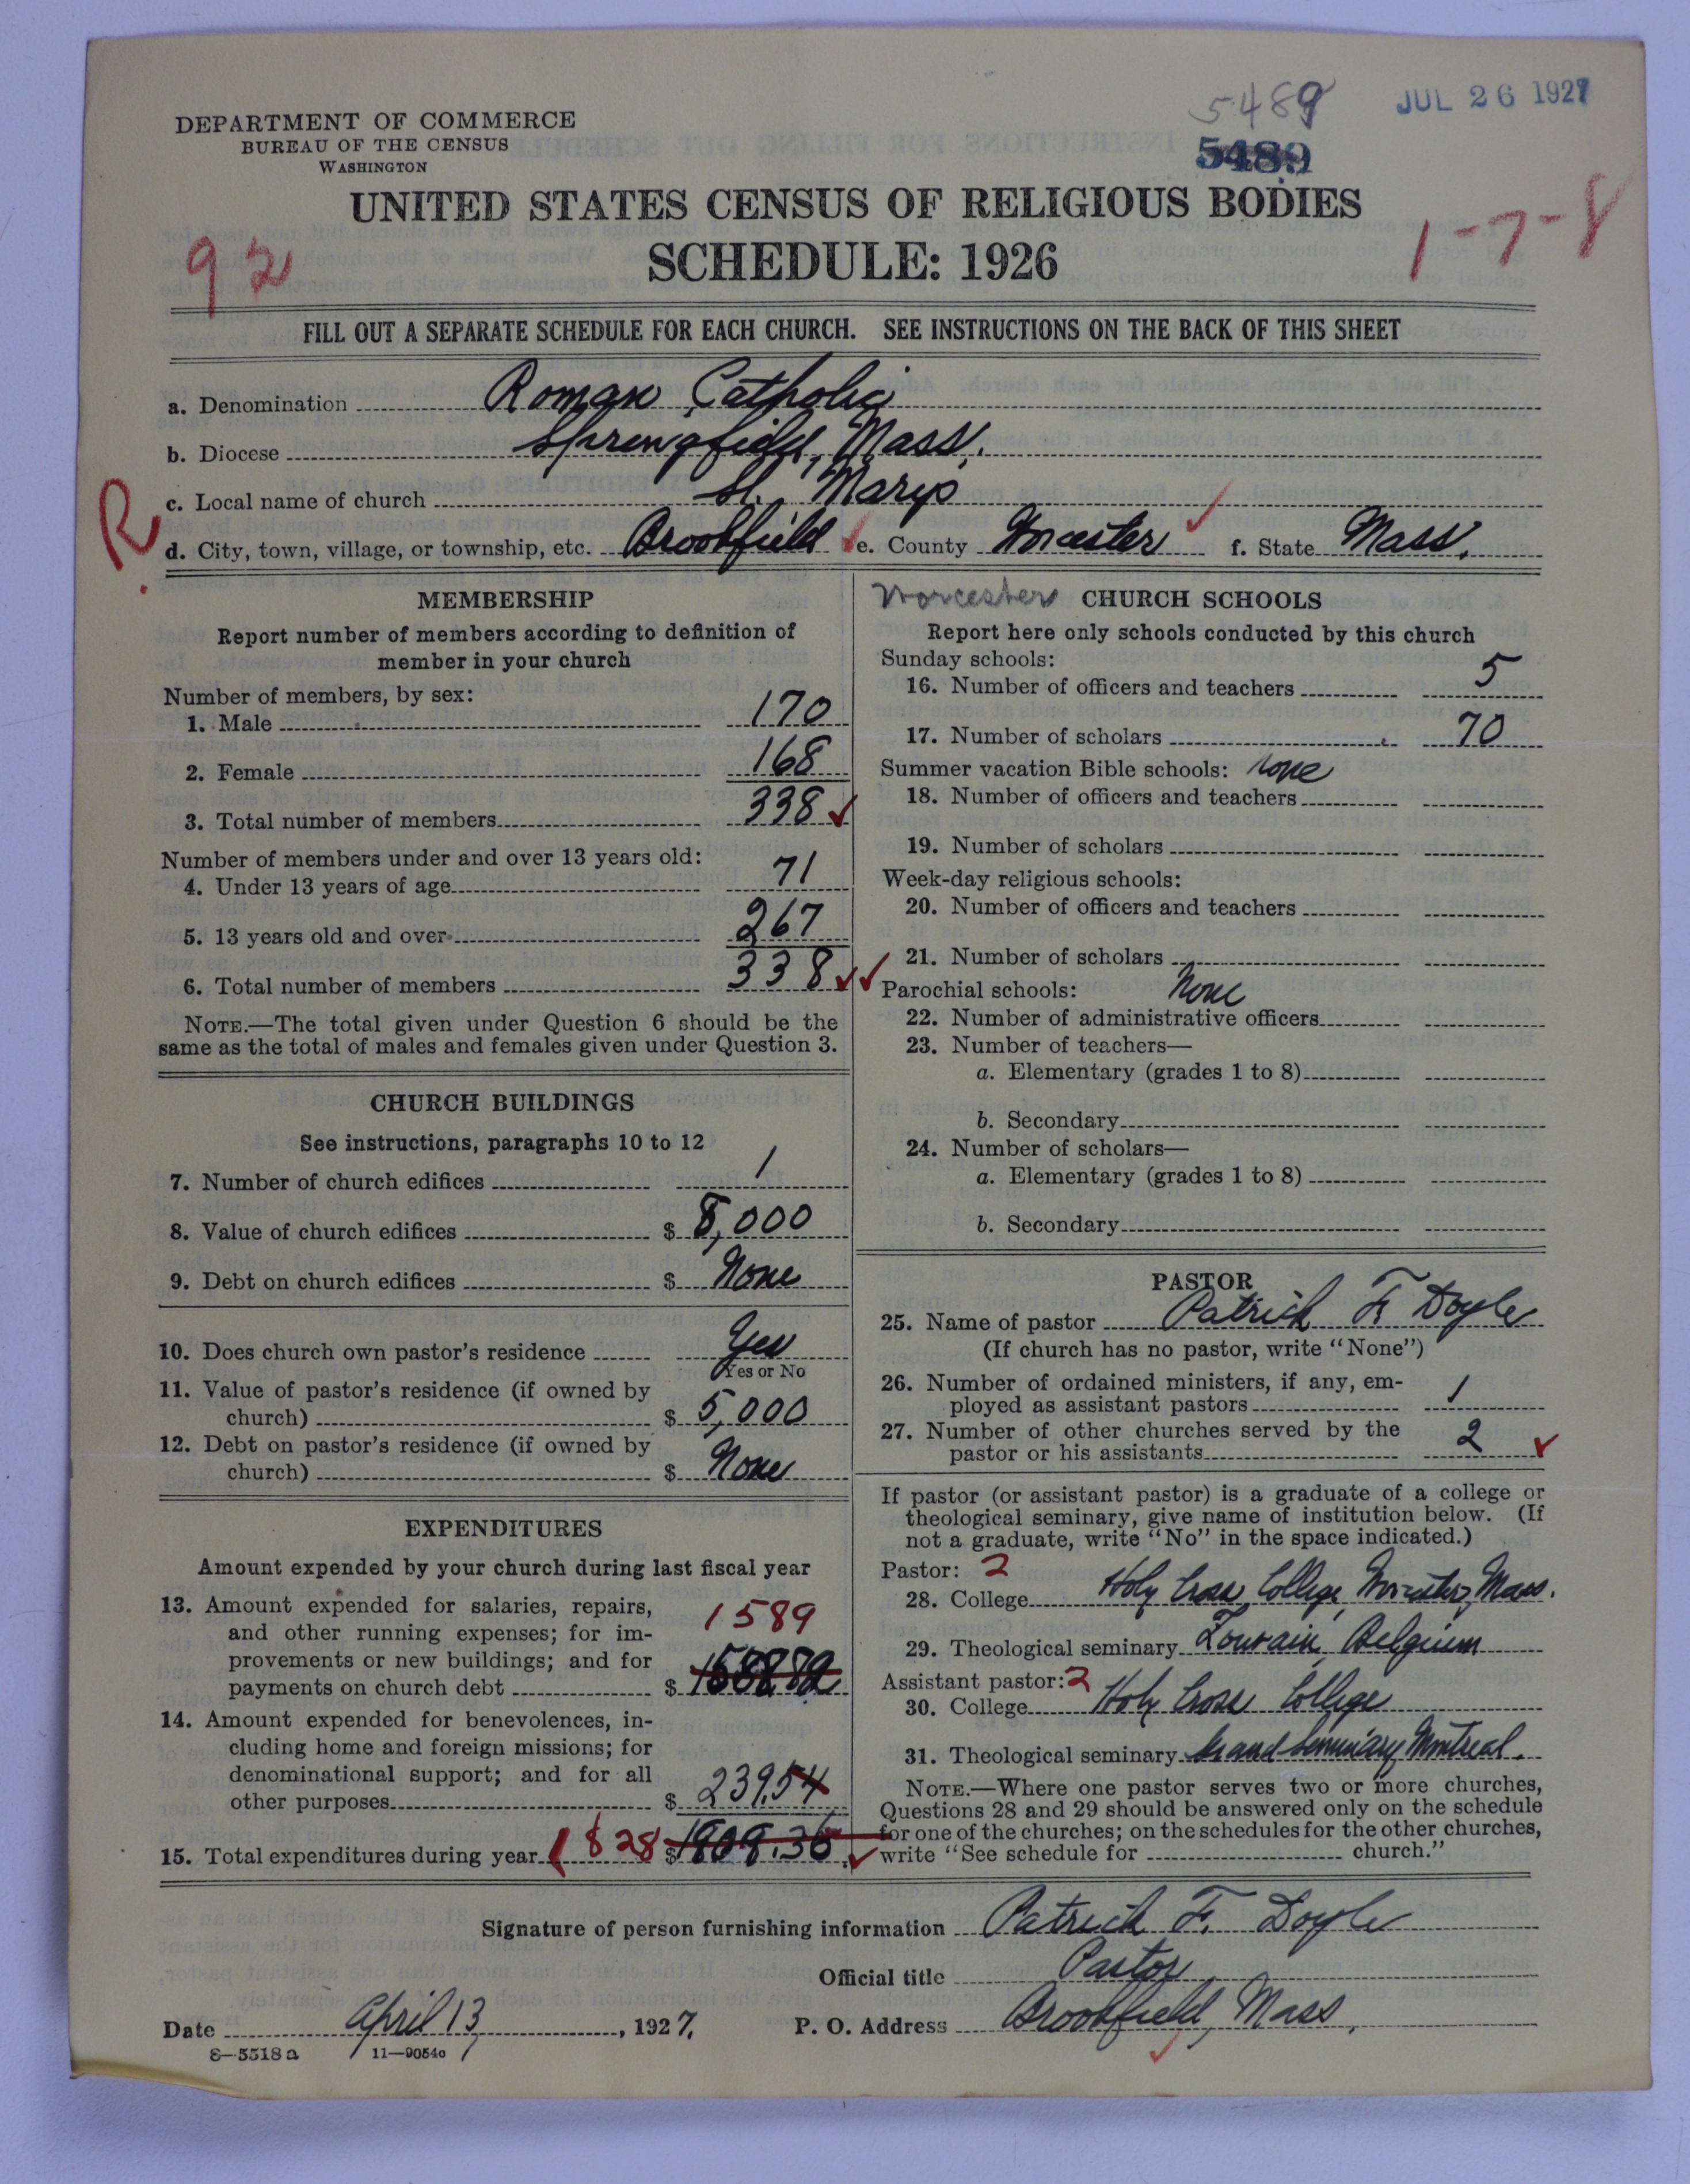 5489
JUL 26 1927
DEPARTMENT OF COMMERCE
BUREAU OF THE CENSUS
WASHINGTON
5489
UNITED STATES CENSUS OF RELIGIOUS BODIES
SCHEDULE: 1926
92
1-7-8
FILL OUT A SEPARATE SCHEDULE FOR EACH CHURCH. SEE INSTRUCTIONS ON THE BACK OF THIS SHEET
a. Denomination Roman Catholic
b. Diocese Springfield, Mass.
R.
c. Local name of church St. Marys
d. City, town, village, or township, etc. Brookfield e. County Worcester f. State Mass.
MEMBERSHIP
Report number of members according to definition of
member in your church
Number of members, by sex:
1. Male 170
2. Female 168
3. Total number of members 338
Number of members under and over 13 years old:
4. Under 13 years of age 71
5. 13 years old and over 267
6. Total number of members 338
NOTE.—The total given under Question 6 should be the
same as the total of males and females given under Question 3.
CHURCH BUILDINGS
See instructions, paragraphs 10 to 12
7. Number of church edifices 1
8. Value of church edifices $ 8,000
9. Debt on church edifices $ None
10. Does church own pastor's residence Yes
Yes or No
11. Value of pastor's residence (if owned by
church) $ 5,000
12. Debt on pastor's residence (if owned by
church) $ None
EXPENDITURES
Amount expended by your church during last fiscal year
13. Amount expended for salaries, repairs,
and other running expenses; for im-
provements or new buildings; and for
payments on church debt $ 1589
14. Amount expended for benevolences, in-
cluding home and foreign missions; for
denominational support; and for all
other purposes $ 239.54
15. Total expenditures during year 1828 $
Worcester CHURCH SCHOOLS
Report here only schools conducted by this church
Sunday schools:
16. Number of officers and teachers 5
17. Number of scholars 70
Summer vacation Bible schools: None
18. Number of officers and teachers
19. Number of scholars
Week-day religious schools:
20. Number of officers and teachers
21. Number of scholars
Parochial schools: None
22. Number of administrative officers
23. Number of teachers—
a. Elementary (grades 1 to 8)
b. Secondary
24. Number of scholars—
a. Elementary (grades 1 to 8)
b. Secondary
PASTOR
25. Name of pastor Patrick F. Doyle
(If church has no pastor, write "None")
26. Number of ordained ministers, if any, em-
ployed as assistant pastors 1
27. Number of other churches served by the
pastor or his assistants 2
If pastor (or assistant pastor) is a graduate of a college or
theological seminary, give name of institution below. (If
not a graduate, write "No" in the space indicated.)
Pastor: 2
28. College Holy Cross College, Worcester, Mass.
29. Theological seminary Louvain, Belgium
Assistant pastor: 2
30. College Holy Cross College
31. Theological seminary Grand Seminary Montreal.
NOTE.—Where one pastor serves two or more churches,
Questions 28 and 29 should be answered only on the schedule
for one of the churches; on the schedules for the other churches,
write "See schedule for church."
Signature of person furnishing information Patrick F. Doyle
Official title Pastor
Date April 13, 1927. P. O. Address Brookfield, Mass.
8—5518a 11—9054c